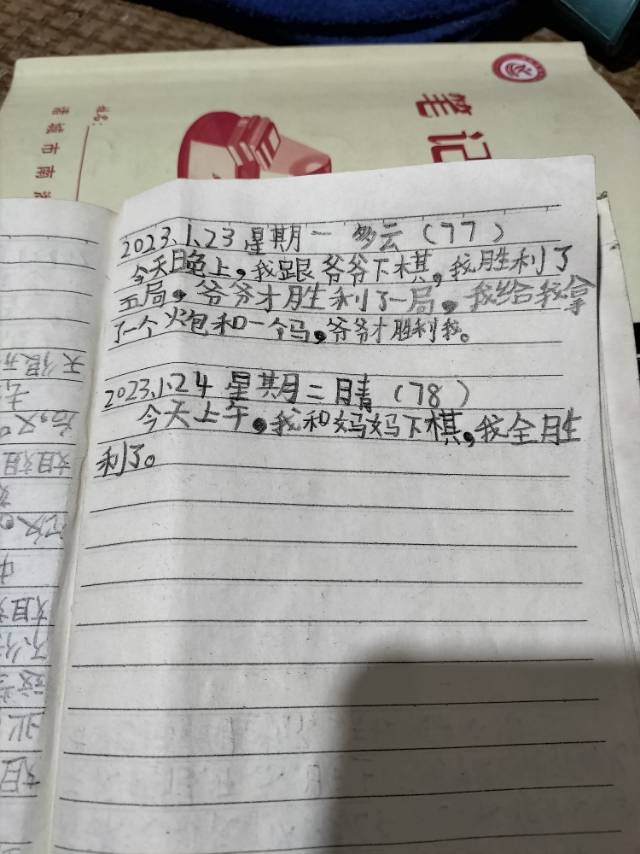 笔记
姓名:
诸城市南
2023.1.23 星期一 多云（77）
今天晚上，我跟爷爷下棋，我胜利了
五局，爷爷才胜利了一局，我给我拿
了一个火包和一个马，爷爷才胜利我。
2023.1.24 星期二 晴（78）
今天上午，我和妈妈下棋，我全胜
利了。